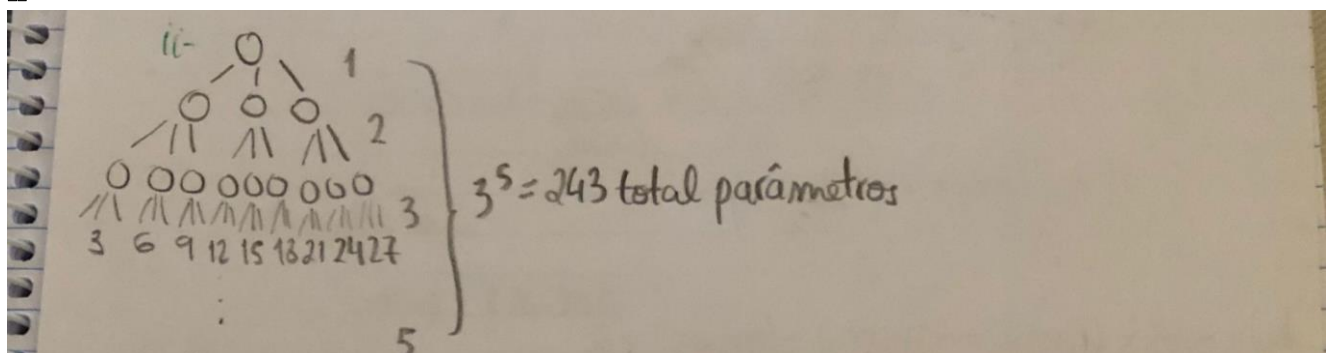 ii-
1
2
3
3 6 9 12 15 18 21 24 27
⋮
5
3⁵ = 243 total parâmetros